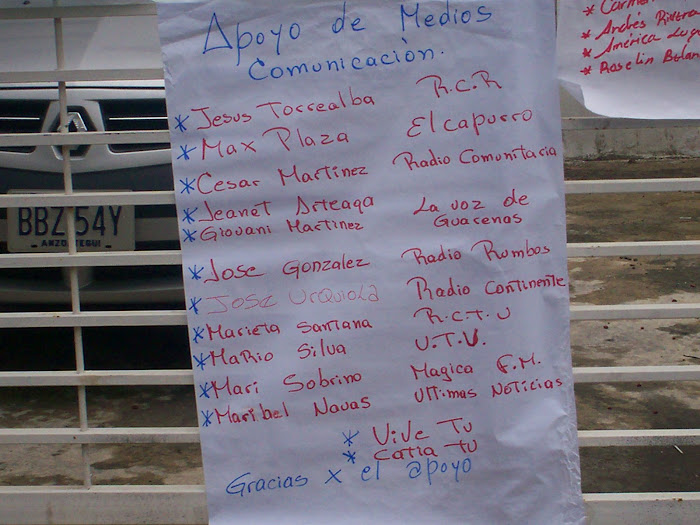 Apoyo de Medios
Comunicación.
* Jesus Torrealba R.C.R
* Max Plaza El capurro
* Cesar Martinez Radio Comunitaria
* Jeanet Arteaga La voz de
* Giovani Martinez Guarenas
* Jose Gonzalez Radio Rumbos
* Jose Urquiola Radio Continente
* Marieta Santana R.C.T.U
* Mario Silva U.T.V.
* Mari Sobrino Magica F.M.
* Maribel Navas Ultimas Noticias
* ViVe Tv
* Catia tv
Gracias x el apoyo
* Andrés Rivera
* América
* Roselin
BBZ 54Y
ANZOATEGUI